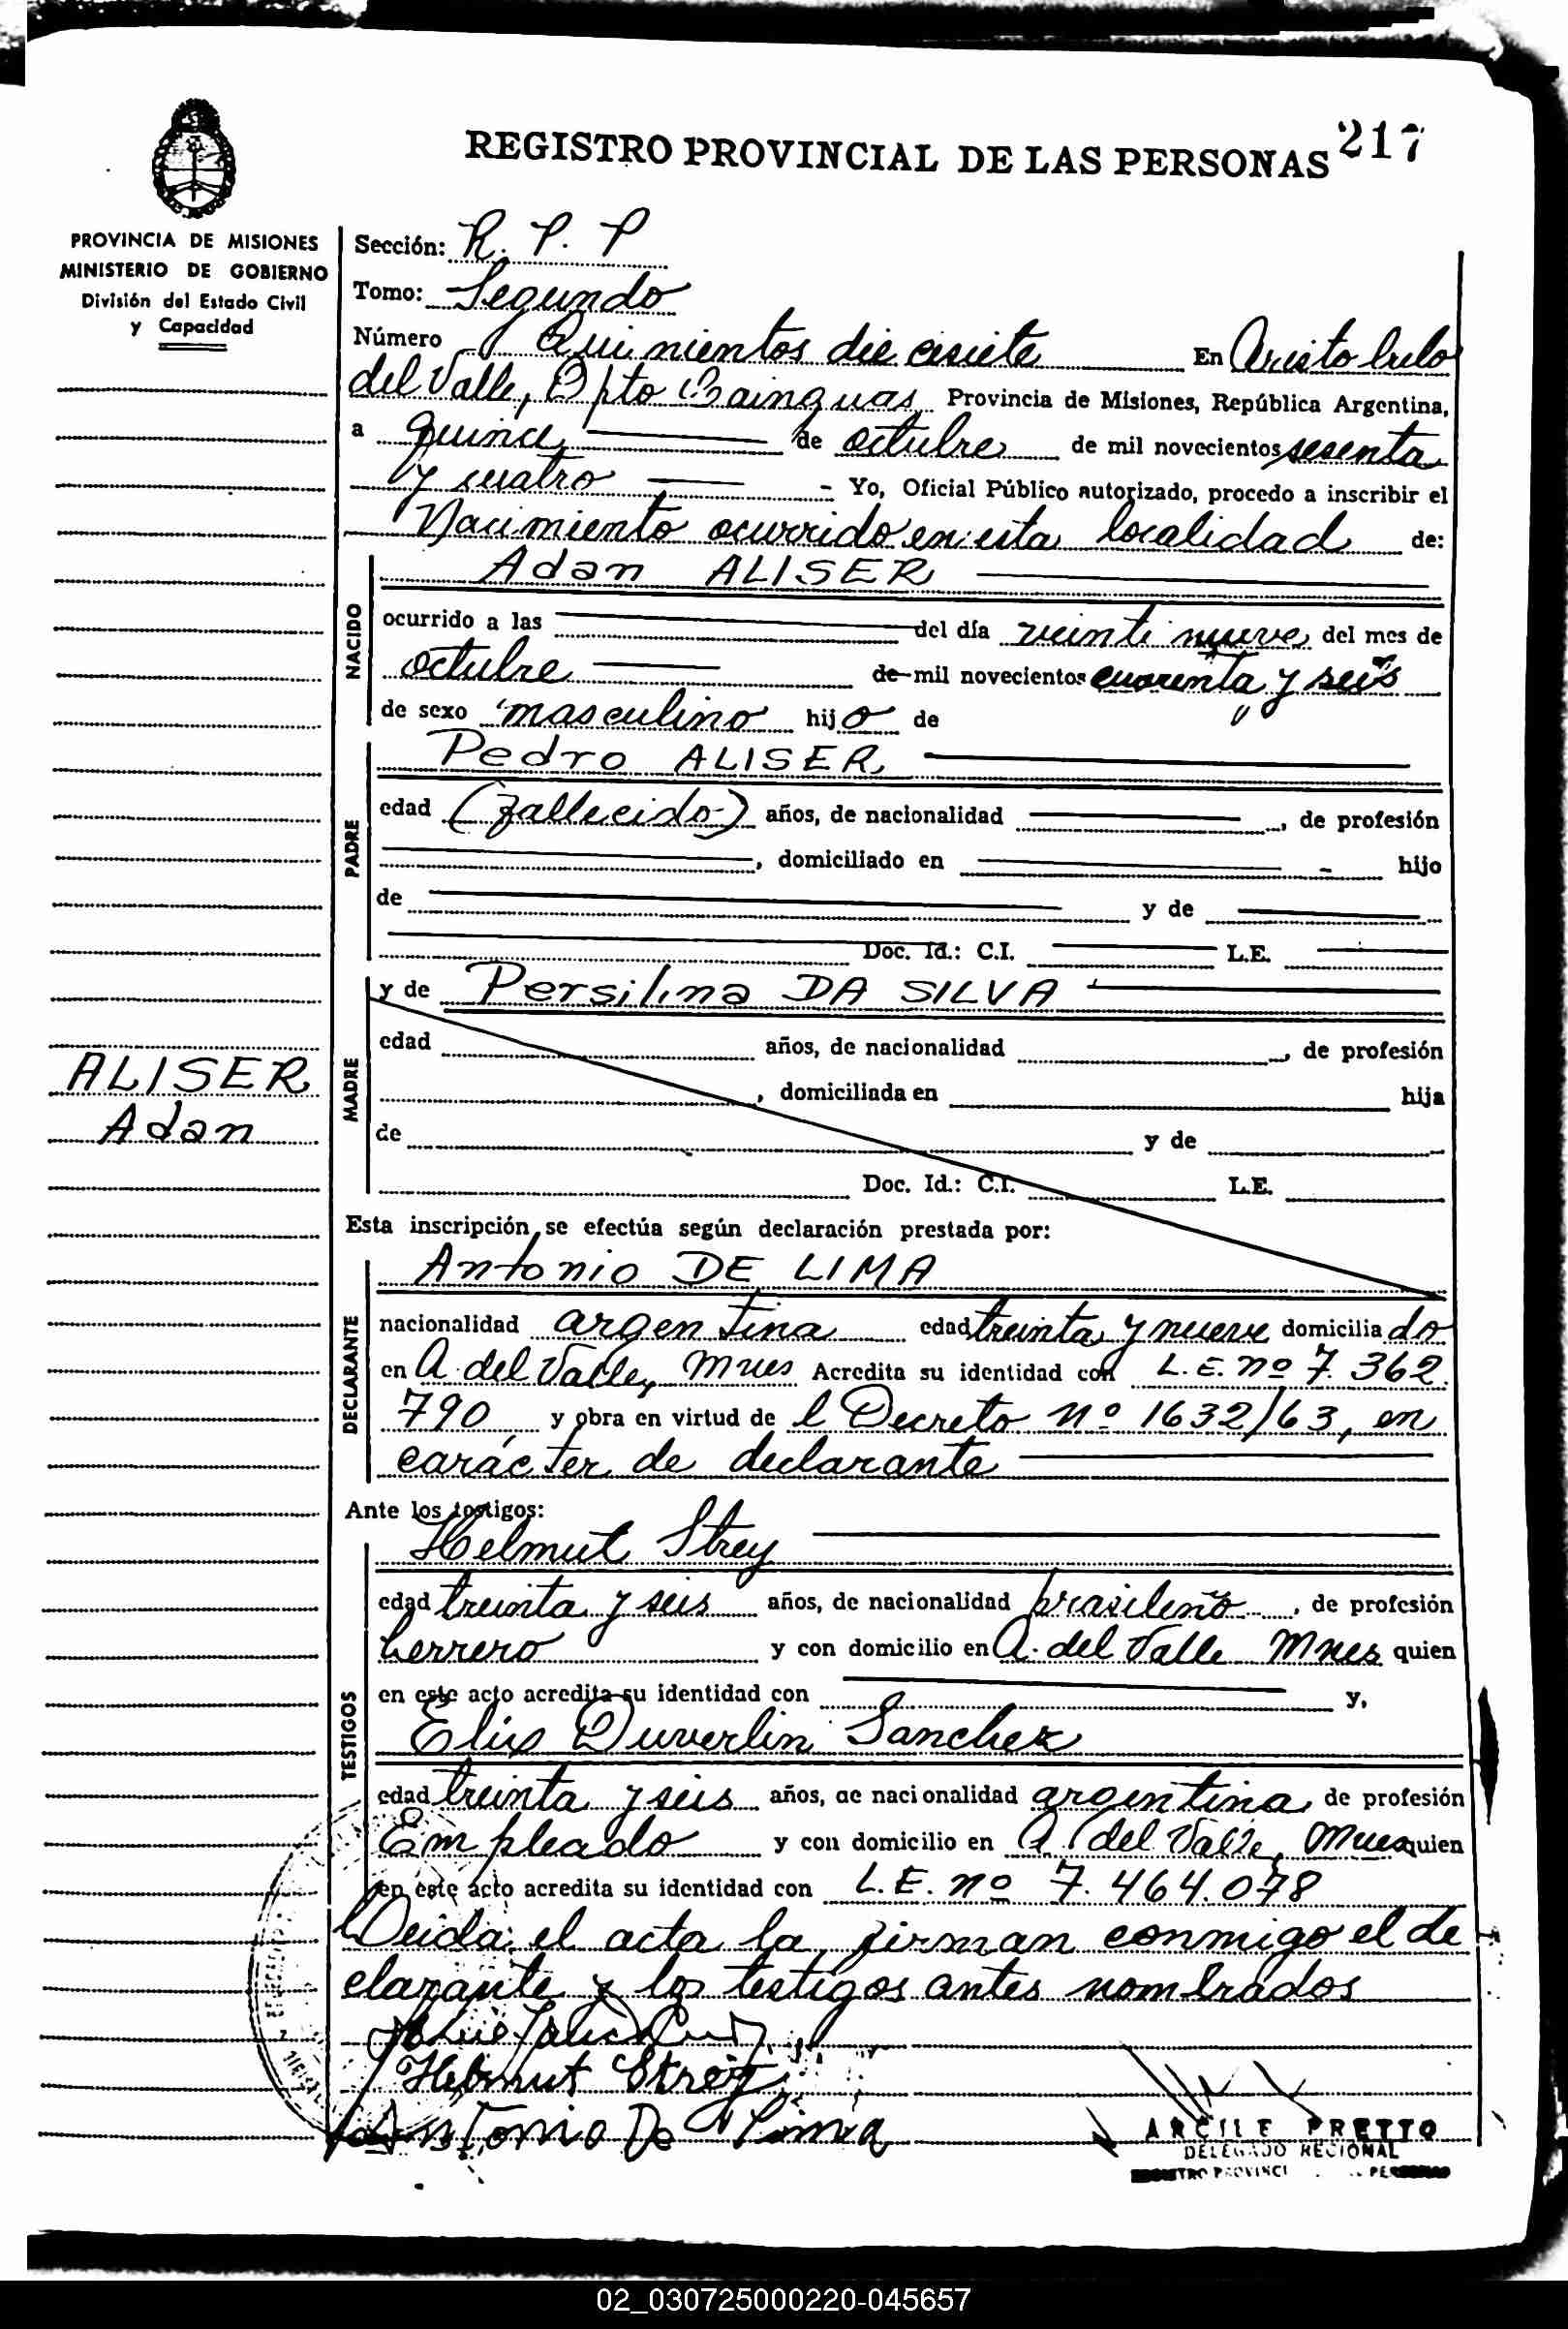 217
REGISTRO PROVINCIAL DE LAS PERSONAS
PROVINCIA DE MISIONES
MINISTERIO DE GOBIERNO
División del Estado Civil
y Capacidad
Sección: R. P. P
Tomo: Segundo
Número Quinientos diecisiete En Aristobulo
del Valle, Dpto Cainguas Provincia de Misiones, República Argentina,
a quince de octubre de mil novecientos sesenta
y cuatro - Yo, Oficial Público autorizado, procedo a inscribir el
Nacimiento ocurrido en esta localidad de:
NACIDO
Adan ALISER
ocurrido a las del día veinti nueve del mes de
octubre de mil novecientos cuarenta y seis
de sexo masculino hijo de
PADRE
Pedro ALISER
edad (fallecido) años, de nacionalidad , de profesión
, domiciliado en hijo
de y de
Doc. Id.: C.I. L.E.
MADRE
y de Persilina DA SILVA
edad años, de nacionalidad , de profesión
, domiciliada en hija
de y de
Doc. Id.: C.I. L.E.
ALISER
Adan
Esta inscripción se efectúa según declaración prestada por:
DECLARANTE
Antonio DE LIMA
nacionalidad argentina edad treinta y nueve domiciliado
en A. del Valle, Mnes Acredita su identidad con L.E. nº 7.362.
790 y obra en virtud de l Decreto nº 1632/63, en
carácter de declarante
Ante los testigos:
TESTIGOS
Helmut Strey
edad treinta y seis años, de nacionalidad brasileño, de profesión
herrero y con domicilio en A. del Valle Mnes quien
en este acto acredita su identidad con y,
Elis Duverlin Sanchez
edad treinta y seis años, de nacionalidad argentina, de profesión
Empleado y con domicilio en A. del Valle, Mnes quien
en este acto acredita su identidad con L.E. nº 7.464.078
Leida el acta la firman conmigo el de
clarante y los testigos antes nombrados
Helmut Strey
Antonio De Lima
ARCILE PRETTO
DELEGADO REGIONAL
02_030725000220-045657